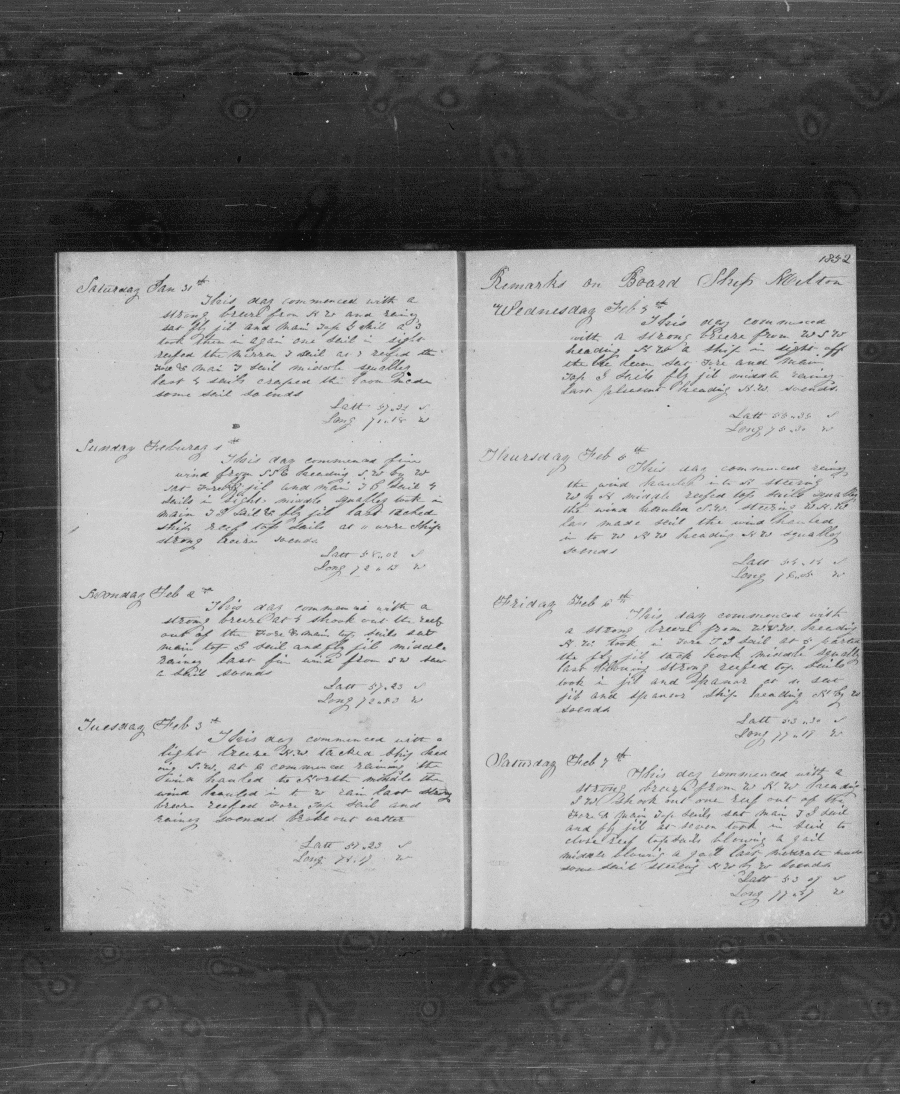 Saturday Jan 31th
This day commenced with a
strong breeze from N.W and rainy
set fly jib and main top G Sail at 3
took them in again one Sail in sight
reefed the mizzen T Sail at 5 reefed the
fore & main T Sail middle squally
last
some sail so ends
Latt 57..
Long 71..18 W
Sunday Feburay 1th
This day commenced fine
wind from SSE heading S.W by W
set fore fly jib and main T G Sail 4
Sails in sight middle squally took in
main T G Sail & fly jib last tacked
ship reef top Sails at 11 wore Ship
strong breeze so ends
Latt 58..02 S
Long 72..13 W
Monday Feb 2th
This day commenced with a
strong breeze at 4 shook out the reefs
out of the Fore & main top sails set
main top G Sail and fly jib middle
rainey last fine wind from SW saw
a sail so ends
Latt 57..23 S
Long 73..53 W
Tuesday Feb 3th
This day commenced with a
light breeze N.W tacked Ship head
ing S.W. at 6 commenced raining the
wind hauled to North middle the
wind hauled in to W rain last strong
breeze reefed Fore top Sail and
rainey so ends broke out watter
Latt 57..23 S
Long W
1852
Remarks on Board Ship Milton
Wednesday Feb 5th
This day commenced
with a strong breeze from W S W
heading N W a ship in sight off
the lee beem set Fore and main
top G Sails fly jib middle rainey
last pleasent heading N.W. so ends
Latt 55..35 S
Long 75..30 W
Thursday Feb 6th
This day commenced rainey
the wind hauled into N steering
W by N middle reefed top Sails squally
the wind hauled S.W. steering W.N.W
last made sail the wind hauled
in to W N W heading N W squally
so ends
Latt S
Long W
Friday Feb 6th
This day commenced with
a strong breeze from W.N.W. heading
N.W. took in Fore T G Sail at 5 parted
the fly jib tack hook middle squally
last blowing strong reefed top Sails
took in jib and spancor at 10 set
jib and spancor Ship heading N by W
so ends
Latt 53..30 S
Long 77..18 W
Saturday Feb 7th
This day commenced with a
strong breeze from W N.W heading
S W. shook out one reef out of the
Fore & main Top Sails set main T G Sail
and fly jib at seven took in Sail to
close reef topsails blowing a gail
middle blowing a gail last moderate made
some sail steering N.W by W so ends
Latt 53..07 S
Long 77..57 W